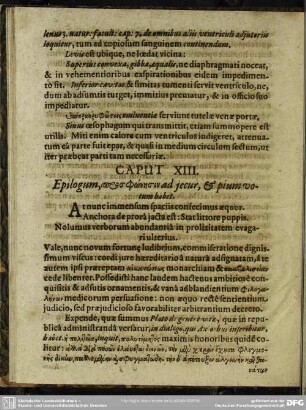 lenus 3. natur. facult: cap: 7. de omnibus aliis ventriculi adjutoriis
loquitur, tum ad copiosum sanguinem continendum.
Levis est ubique, ne lædat vicina:
Superius convexa, gibba, æqualis, ne diaphragmati noceat,
& in vehementioribus expirationibus eidem impedimen-
to sit. Inferius cavitas & simitas tumenti servit ventriculo, ne,
dum ab assumtis turget, immitius prematur, & in officio suo
impediatur.
eminentiæ serviunt tutelæ venæ portæ,
Sinus œsophagum qui transmittit, etiam summopere est
utilis. Miti enim calore cum ventriculus indigeret, attenua-
tum eâ parte fuit epar, & quasi in medium circulum sectum, ut
iter præbeat parti tam necessariæ.
CAPUT XIII.
Epilogum, ad jecur, & pium vo-
tum habet.
At nunc immensum spatiis confecimus æquor.
Anchora de prorâ jacta est: Stat littore puppis.
Nolumus verborum abundantiâ in prolixitatem evaga-
ri ulterius.
Vale, nunc novum fortunæ ludibrium, commiseratione dignis-
simum viscus: cordi jure hæreditario à naturâ adsignatam, à te
autem ipsi præreptam monarchiam &
cede libenter. Possedisti hanc laudem hactenus ambitione con-
quisitis & adsutis ornamentis, & vanâ adblandientium
medicorum persuasione: non æquo rectè sentientium,
judicio, sed præjudicioso favorabiliter arbitrantium decreto.
Expende, quæ summus Plato de genere vitæ, quæ in repub-
licâ administrandâ versatur, in dialogo, qui
maximis honoribus quidé co-
litur: